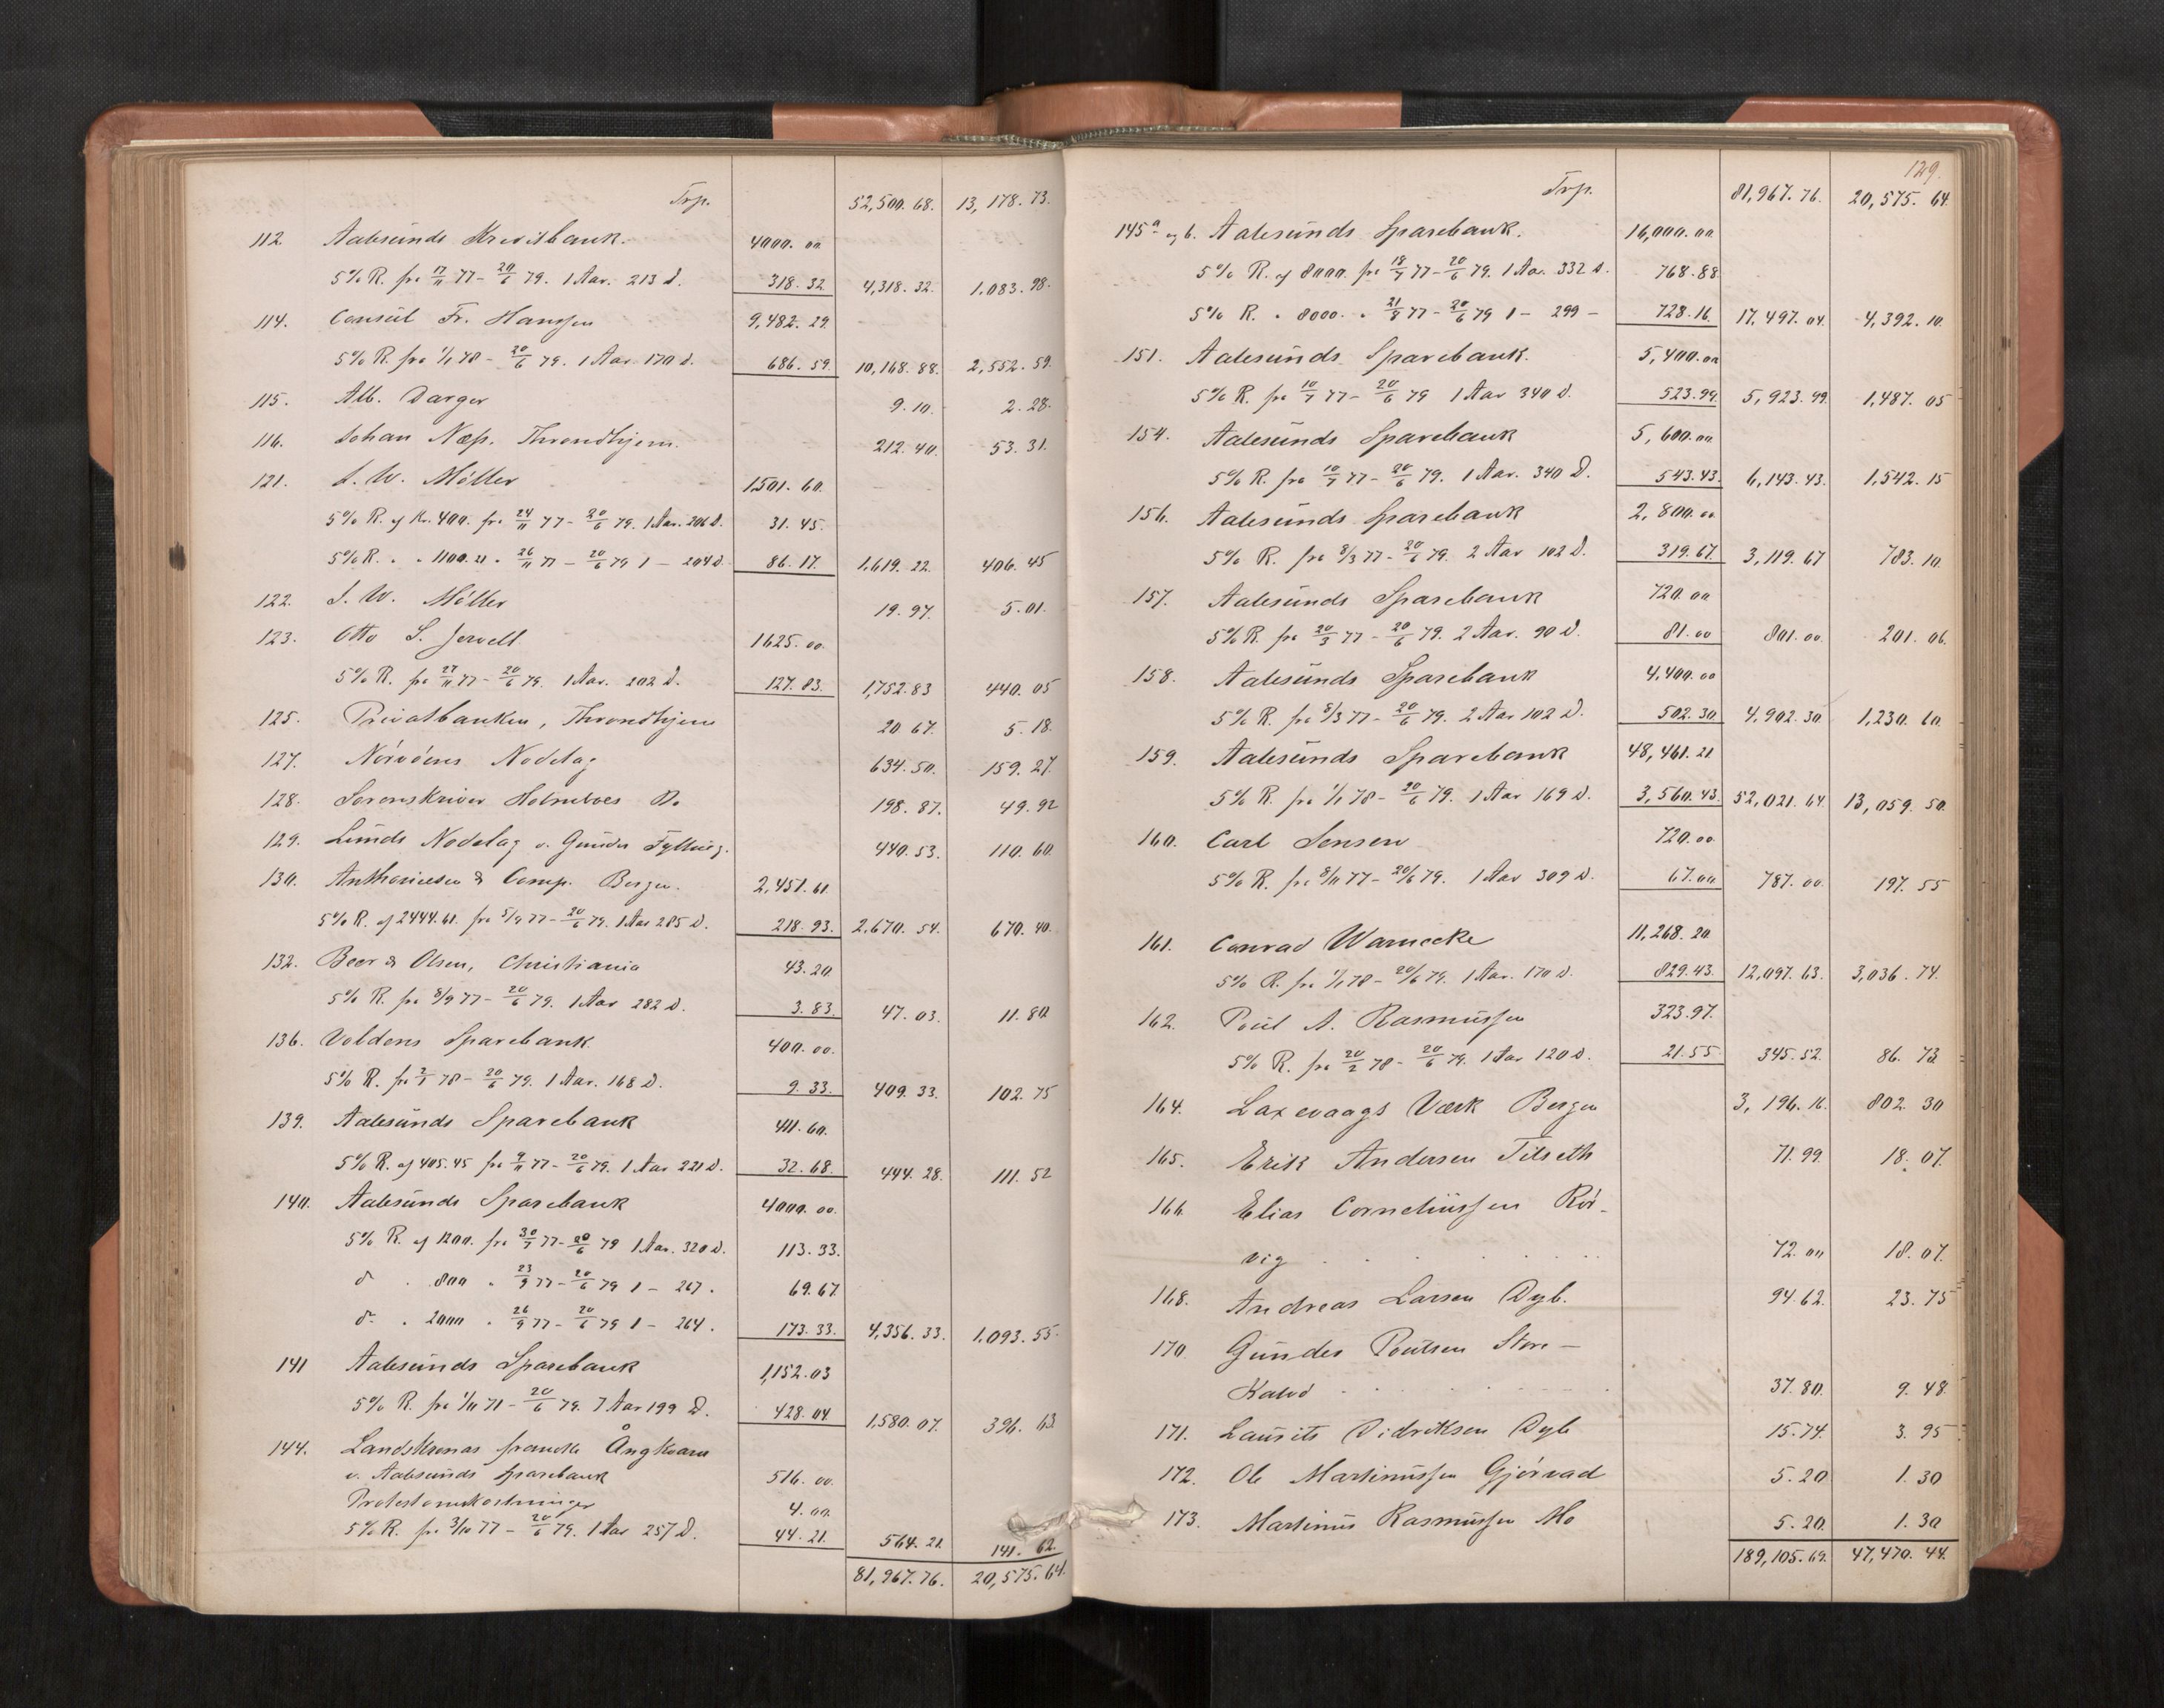 Trp. 52,500.68. 13,178.73.
112. Aalesunds Kreditbank. 4000.00
5% R. fra 17/11 77 - 20/6 79. 1 Aar. 213 d. 318.32 4,318.32. 1,083.98.
114. Consul Fr. Hanssen 9,482.29.
5% R. fra 1/1 78 - 20/6 79. 1 Aar 170 d. 686.59. 10,168.88. 2,552.59.
115. Alb. Darger 9.10. 2.28.
116. Johan Næss. Throndhjem. 212.40. 53.31.
121. L. W. Möller 1501.60.
5% R. af Kr. 400. fra 24/11 77 - 20/6 79. 1 Aar. 206 d. 31.45.
5% R. " " 1100.21 " 26/11 77 - 20/6 79 1 - 204 d. 86.17. 1,619.22. 406.45
122. L. W. Möller 19.97. 5.01.
123. Otto L. Jervell 1625.00.
5% R. fra 27/11 77 - 20/6 79. 1 Aar. 202 d. 127.83. 1,752.83 440.05
125. Privatbanken, Throndhjem 20.67. 5.18.
127. Nörvöens Nodelag 634.50. 159.27.
128. Sorenskriver Holmboes Do 198.87. 49.92
129. Lunds Nodelag v. Gunder Tylling. 440.53. 110.60.
130. Anthoniesen & Comp. Bergen. 2,451.61.
5% R. af 2444.61. fra 5/9 77 - 20/6 79. 1 Aar 285 d. 218.93. 2,670.54. 670.40.
132. Beer & Olsen, Christiania 43.20.
5% R. fra 8/9 77 - 20/6 79. 1 Aar 282 d. 3.83. 47.03. 11.80
136. Voldens Sparebank. 400.00.
5% R. fra 2/1 78 - 20/6 79. 1 Aar. 168 d. 9.33. 409.33. 102.75
139. Aalesunds Sparebank 411.60.
5% R. af 405.45 fra 9/11 77 - 20/6 79. 1 Aar 221 d. 32.68. 444.28. 111.52
140. Aalesunds Sparebank 4000.00.
5% R. af 1200. fra 30/7 77 - 20/6 79 1 Aar. 320 d. 113.33.
do " 800 " 23/9 77 - 20/6 79 1 - 267. 69.67.
do " 2000 " 26/9 77 - 20/6 79 1 - 264. 173.33. 4,356.33. 1,093.55.
141 Aalesunds Sparebank 1,152.03
5% R. fra 1/11 71 - 20/6 79. 7 Aar 199 d. 428.04 1,580.07. 396.63
144. Landskronas franska Ångkvarn
v. Aalesunds Sparebank 516.00.
Protestomkostninger 4.00.
5% R. fra 3/10 77 - 20/6 79. 1 Aar 257 d. 44.21. 564.21. 141.62.
81,967.76. 20,575.64.
129.
Trp. 81,967.76. 20,575.64
145 a og b. Aalesunds Sparebank. 16,000.00
5% R. af 8000. fra 18/7 77 - 20/6 79. 1 Aa. 332 d. 768.88.
5% R. " 8000. " 21/8 77 - 20/6 79 1 - 299 - 728.16. 17,497.04. 4,392.10.
151. Aalesunds Sparebank. 5,400.00
5% R. fra 10/7 77 - 20/6 79 1 Aar 340 d. 523.99. 5,923.99. 1,487.05
154. Aalesunds Sparebank 5,600.00
5% R. fra 10/7 77 - 20/6 79. 1 Aar. 340 d. 543.43. 6,143.43. 1,542.15
156. Aalesunds Sparebank 2,800.00
5% R. fra 8/3 77 - 20/6 79. 2 Aar 102 d. 319.67. 3,119.67 783.10.
157. Aalesunds Sparebank 720.00
5% R. fra 20/3 77 - 20/6 79. 2 Aar. 90 d. 81.00 801.00. 201.06.
158. Aalesunds Sparebank 4,400.00
5% R. fra 8/3 77 - 20/6 79. 2 Aar 102 d. 502.30 4,902.30 1,230.60.
159. Aalesunds Sparebank 48,461.21
5% R. fra 1/1 78 - 20/6 79. 1 Aar 169 d. 3,560.43. 52,021.64. 13,059.50.
160. Carl Jensen 720.00.
5% R. fra 8/11 77 - 20/6 79. 1 Aar 309 d. 67.00 787.00. 197.55
161. Conrad Warnecke 11,268.20
5% R. fra 1/1 78 - 20/6 79. 1 Aar. 170 d. 829.43. 12,097.63. 3,036.74.
162. Poul A. Rasmussen 323.97.
5% R. fra 20/2 78 - 20/6 79. 1 Aar 120 d. 21.55. 345.52. 86.73
164. Laxevaags Værk Bergen 3,196.16. 802.30
165. Erik Andersen Titseth 71.99. 18.07.
166 Elias Corneliussen Rör-
vig 72.00 18.07.
168. Andreas Larsen Dyb. 94.62. 23.75
170 Gunder Poulsen Store-
Kalvö 37.80. 9.48.
171. Laurits Didriksen Dyb 15.74. 3.95
172. Ole Martinussen Gjörvad 5.20 1.30
173. Martinus Rasmussen Mo 5.20. 1.30
189,105.69. 47,470.44.